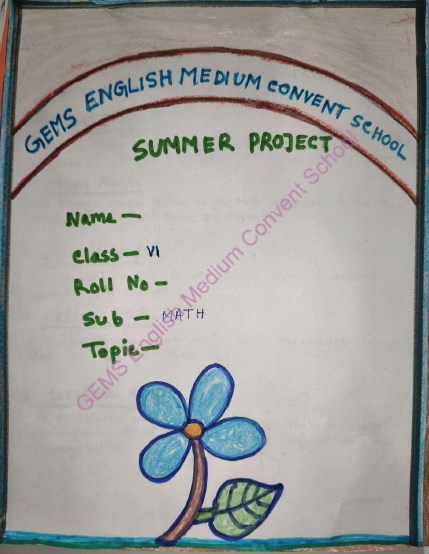 GEMS ENGLISH MEDIUM CONVENT SCHOOL
SUMMER PROJECT
Name —
Class — VI
Roll No —
Sub — MATH
Topic —
GEMS English Medium Convent School